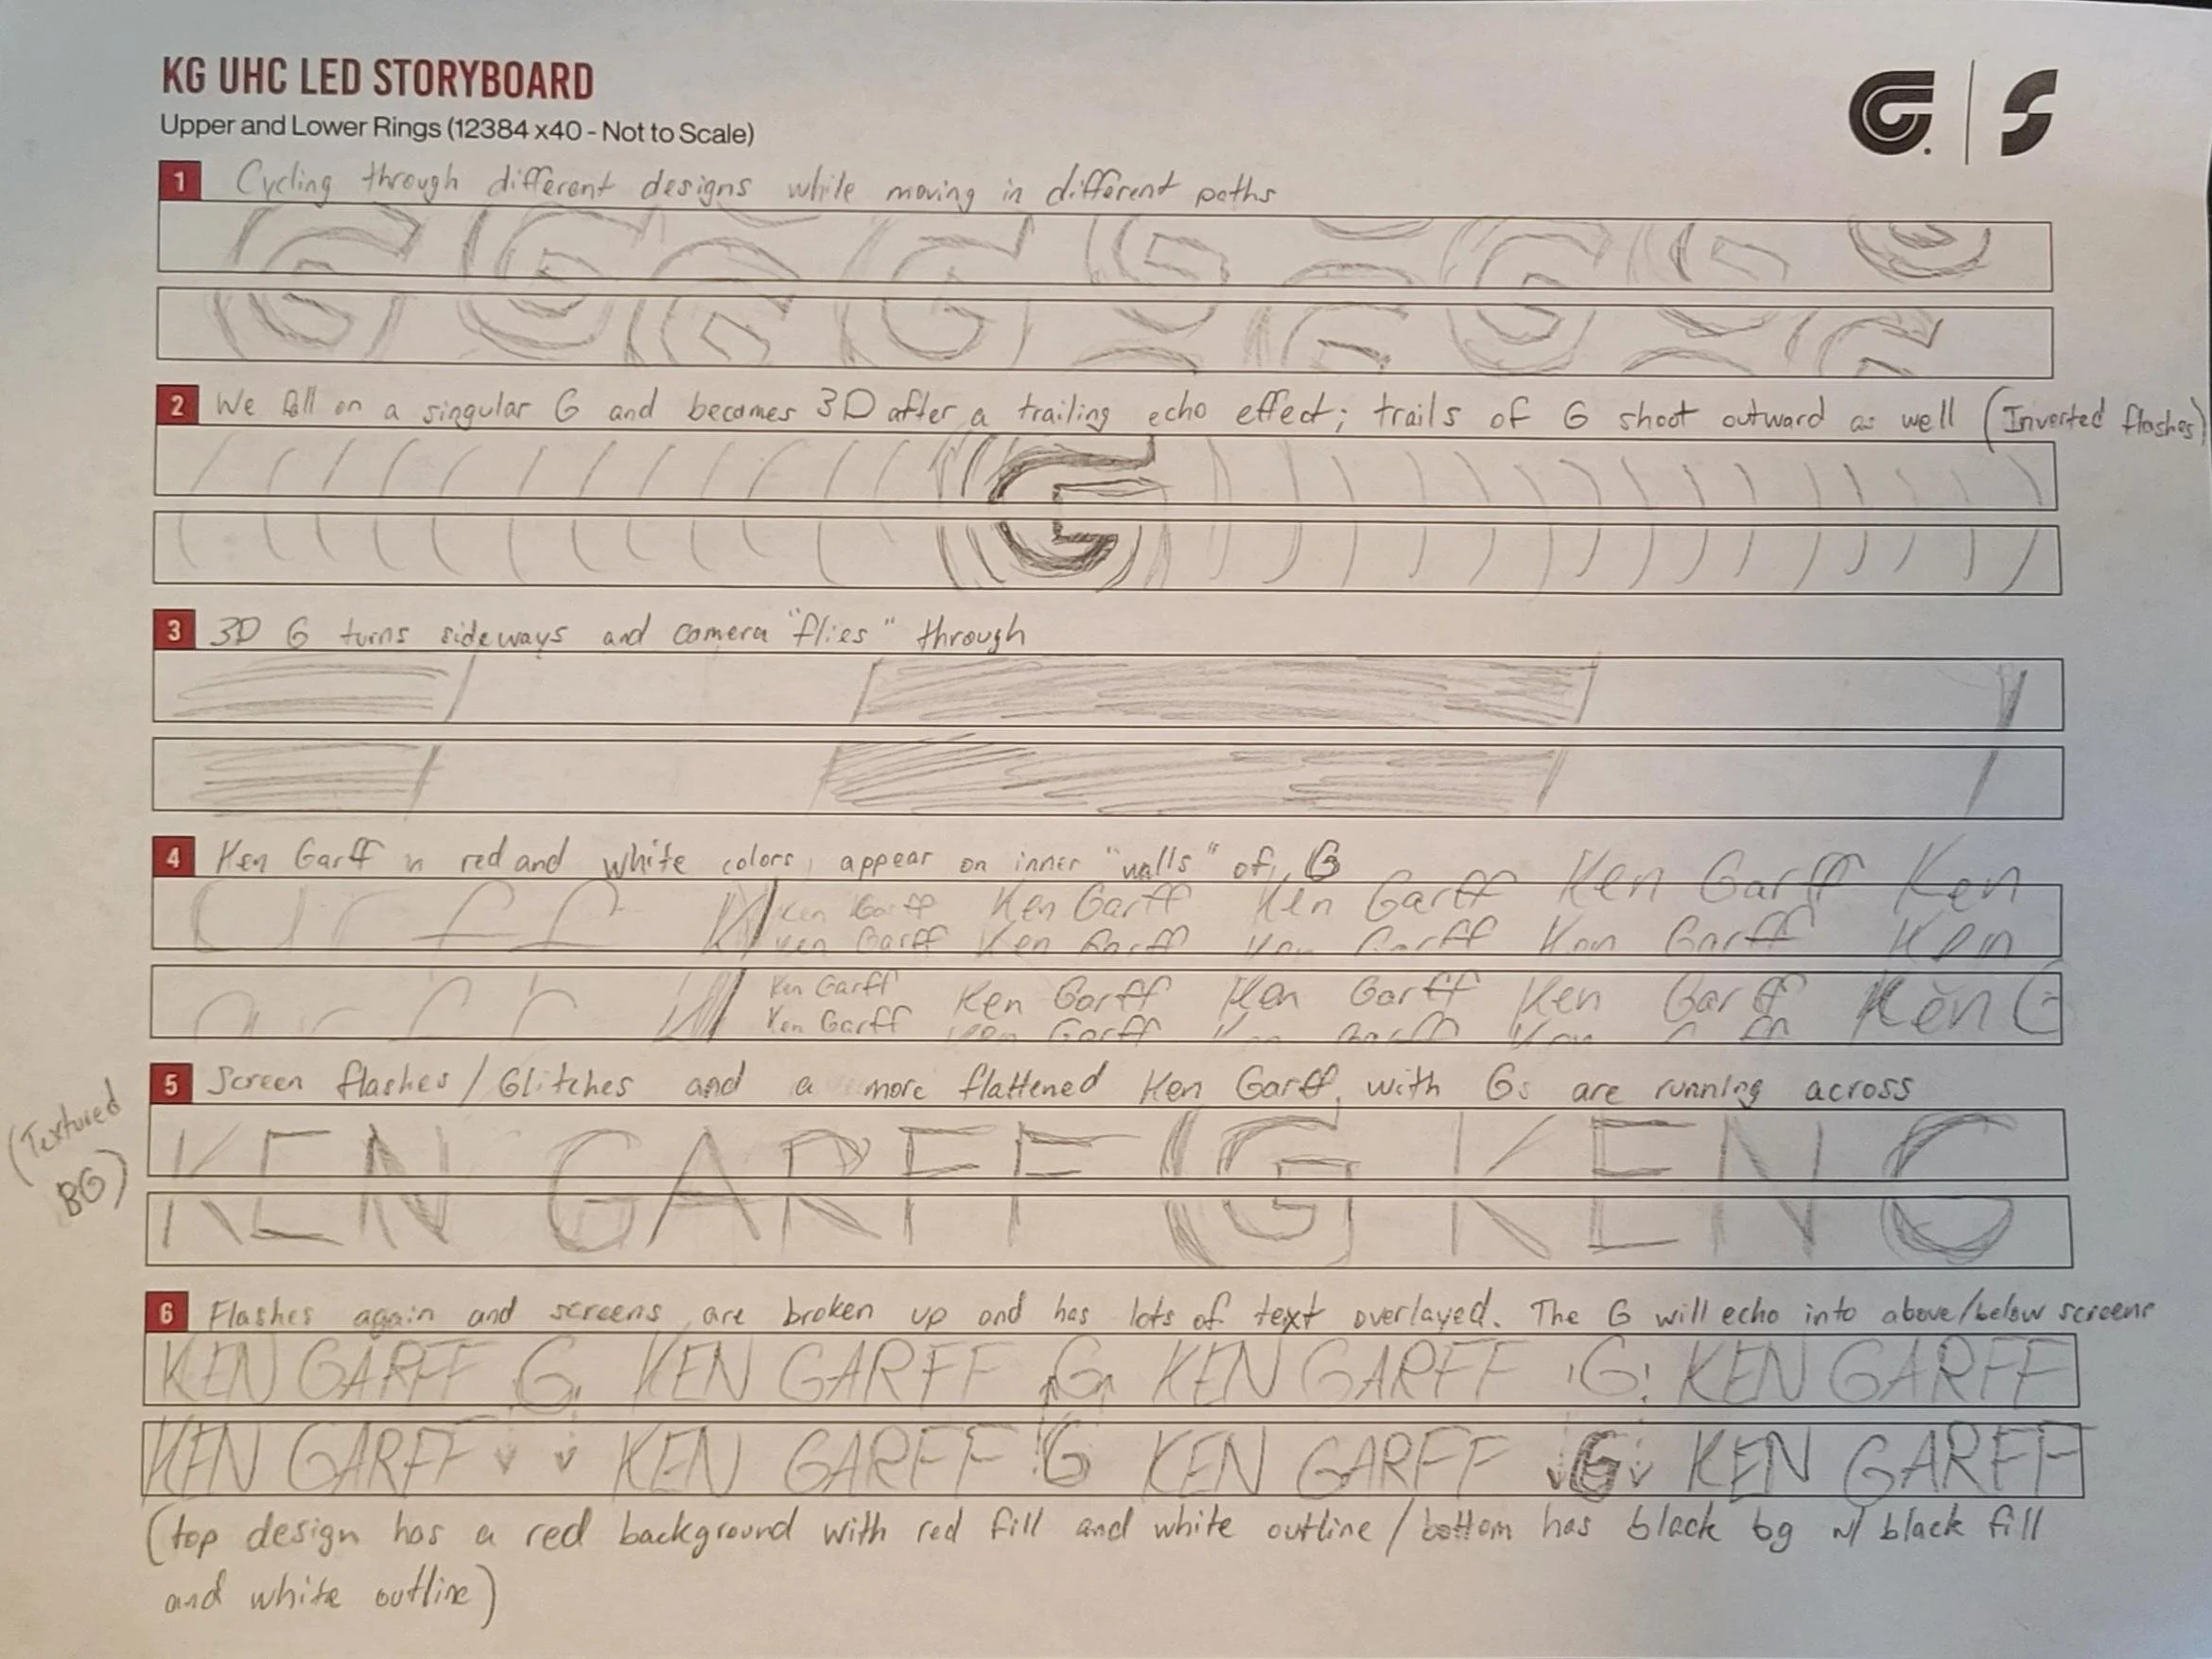 KG UHC LED STORYBOARD
Upper and Lower Rings (12384 x40 - Not to Scale)
1 Cycling through different designs while moving in different paths
2 We fall on a singular G and becomes 3D after a trailing echo effect; trails of G shoot outward as well (Inverted flashes)
G
3 3D G turns sideways and camera "flies" through
4 Ken Garff in red and white colors, appear on inner "walls" of G
Ken Garff Ken Garff Ken Garff Ken Garff Ken
Ken Garff Ken Garff Ken Garff Ken Garff Ken
Ken Garff Ken Garff Ken Garff Ken Garff Ken G
Ken Garff Ken Garff
5 Screen flashes/Glitches and a more flattened Ken Garff with Gs are running across
(Textured
BG)
KEN GARFF G KEN G
6 Flashes again and screens are broken up and has lots of text overlayed. The G will echo into above/below screens
KEN GARFF G KEN GARFF G KEN GARFF G KEN GARFF
KEN GARFF KEN GARFF G KEN GARFF G KEN GARFF
(top design has a red background with red fill and white outline/bottom has black bg w/ black fill
and white outline)